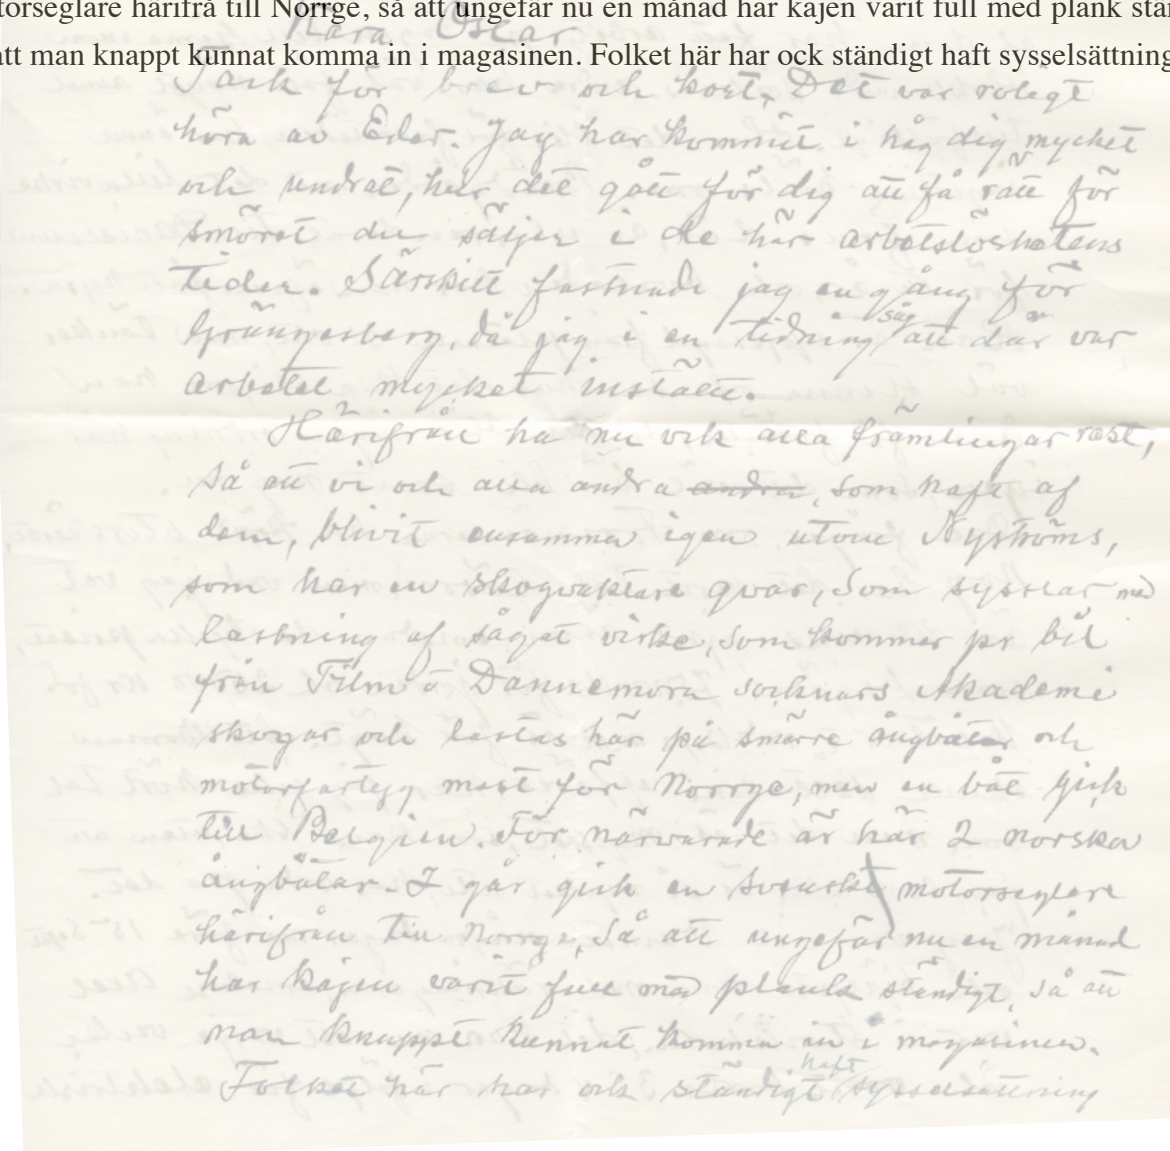 orseglare härifrå till Norrge, så att ungefär nu en månad har kajen varit full med plank stän
att man knappt kunnat komma in i magasinen. Folket här har ock ständigt haft sysselsättning
Kära Oscar
Tack för brev och kort. Det var roligt
höra av Eder. Jag har kommit i håg dig mycket
och undrat, hur det gått för dig att få rätt för
smöret du säljer i de här arbetslöshetens
tider. Särskilt fastnade jag en gång för
Grängesberg, då jag i en tidning såg att där var
arbetet mycket inställt.
Härifrån ha nu vik alla främlingar rest,
så att vi och alla andra andra, som haft af
dem, blivit ensamma igen utom Nyströms,
som har en skogvaktare qvar, som sysslar med
lastning af sågat virke, som kommer pr bil
från Film o Dannemora socknars Akademi
skogar och lastas här på smärre ångbåtar och
motorfartyg mest för Norrge, men en båt gick
till Belgien. För närvarande är här 2 norska
ångbåtar. I går gick en Svensk motorseglare
härifrån till Norrge, så att ungefär nu en månad
har kajen varit full med plank ständigt så att
man knappt kunnat komma in i magasinen.
Folket här har ock ständigt haft sysselsättning